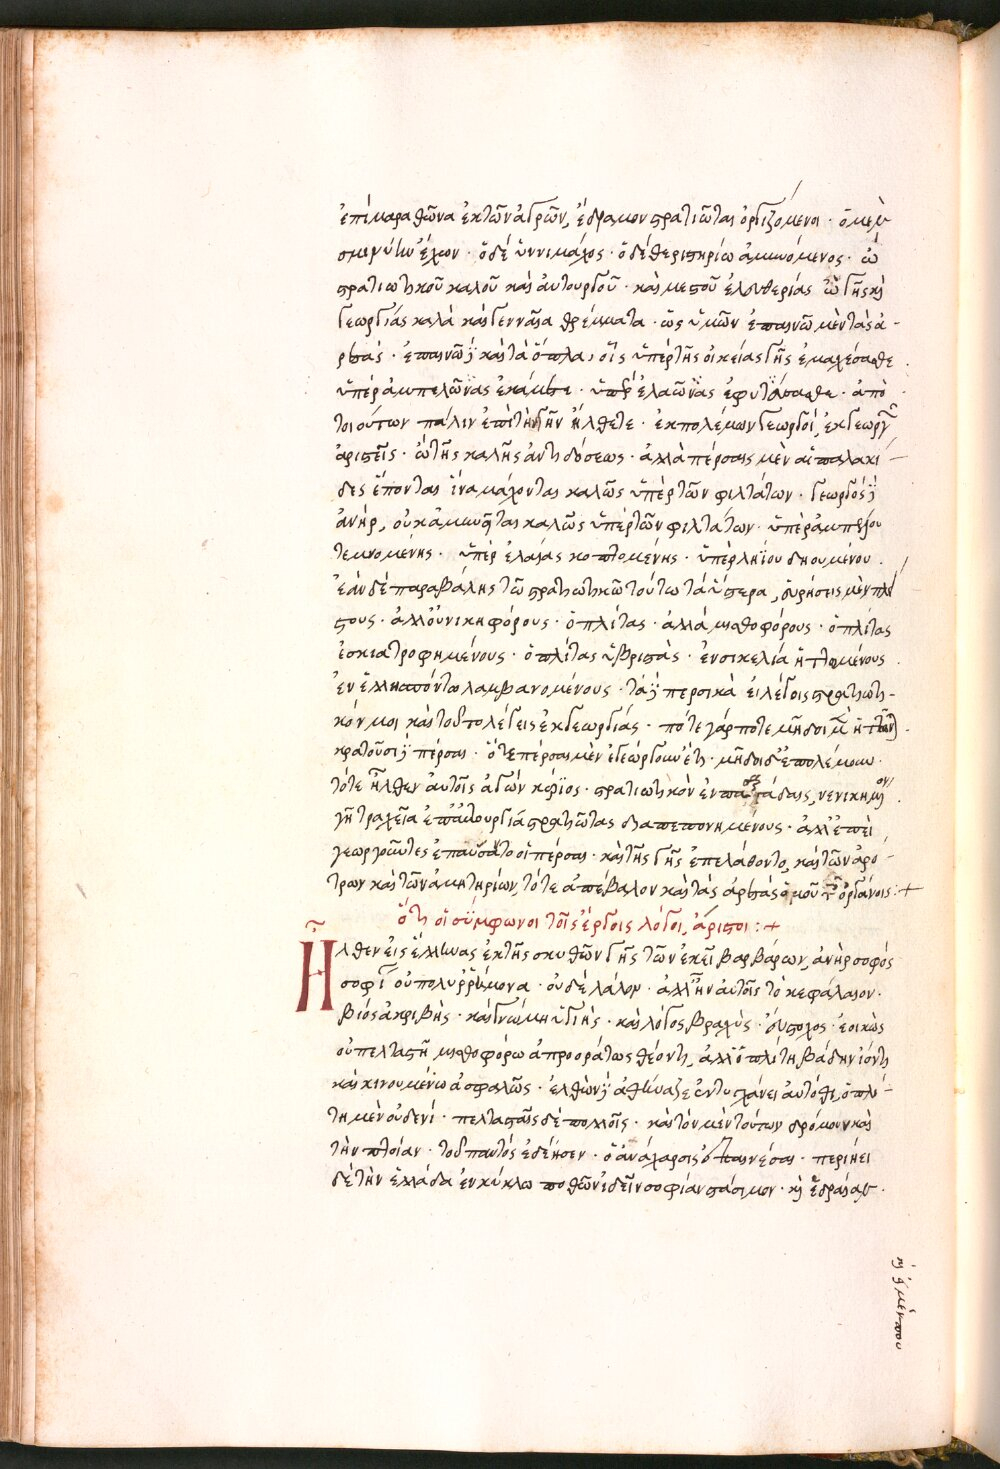 ἐπὶ μαραθῶνα ἐκ τῶν ἀγρῶν, ἔδραμον στρατιῶται ὀργιζόμενοι · ὁ μὲν
σμινύην ἔχων · ὁ δὲ ὕννι μάχος · ὁ δὲ θεριστηρίω ἀμυνόμενος · ὢ
στρατιωτικοῦ καλοῦ καὶ αὐτουργοῦ · καὶ μεστοῦ ἐλευθερίας ὢ γῆς καὶ
γεωργίας καλὰ καὶ γενναῖα θρέμματα · ὡς ὑμῶν ἐπαινῶ μὲν τὰς ἀ-
ρχάς · ἐπαινῶ δὲ καὶ τὰ ὅπλα, οἷς ὑπὲρ τῆς οἰκείας γῆς ἐμαχέσασθε
ὑπὲρ ἀμπελῶνας ἐκάμετε · ὑπὲρ ἐλαιῶνας ἐφυτεύσασθε · ἀπὸ
τοιούτων πάλιν ἐπὶ τὴν γῆν ἤλθετε · ἐκ πολέμων γεωργοὶ, ἐκ γεωργῶν
ἀριστεῖς · ὢ τῆς καλῆς ἀντιδόσεως · ἀλλὰ πέρσαις μὲν αἱ παλλακί-
δες ἕπονται ἵνα μάχονται καλῶς ὑπὲρ τῶν φιλτάτων · γεωργὸς δὲ
ἀνὴρ, οὐκ ἀμυνεῖται καλῶς ὑπὲρ τῶν φιλτάτων · ὑπὲρ ἀμπέλου
τεμνομένης · ὑπὲρ ἐλαίας κοπτομένης · ὑπὲρ ληΐου δηουμένου ·
ἐὰν δὲ παραβάλης τῶ στρατιωτικῶ τούτω τὰ ὕστερα, εὑρήσεις μὲν πλεί
στους · ἀλλ' οὐ νικηφόρους · ὁπλίτας · ἀλλὰ μισθοφόρους · ὁπλίτας
ἐσκιατροφημένους · ὁπλίτας ὑβριστὰς · ἐν σικελία ἡττωμένους ·
ἐν ἑλλησπόντω λαμβανομένους · τὰ δὲ περσικὰ εἰ λέγοις στρατιωτι-
κόν μοι καὶ τοῦτο λέγεις ἐκ γεωργίας · πότε γάρ ποτε μῆδοι μὲν ἡττῶνται
κρατοῦσι δὲ πέρσαι · ὅτε πέρσαι μὲν ἐγεώργουν ἔτι · μῆδοι δ' ἐπολέμουν ·
τότε ἦλθεν αὐτοῖς ἄγων κῦρος · στρατιωτικὸν ἐν πασαργάδαις, νενικημένον
γῆ τραχεῖα ἐπ' αὐτουργία στρατιώτας διαπεπονημένους · ἀλλ' ἐπεὶ
γεωργοῦντες ἐπαύσαντο οἱ πέρσαι · καὶ τῆς γῆς ἐπελάθοντο, καὶ τῶν ἀρό-
τρων καὶ τῶν ἀμητηρίων, τότε ἀπέβαλον καὶ τὰς ἀρχὰς ὁμοῦ τοῖς ὀργάνοις :+
ὅτι οἱ σύμφωνοι τοῖς ἔργοις λόγοι, ἄριστοι :+
Ἦλθεν εἰς ἕλληνας ἐκ τῆς σκυθῶν γῆς τῶν ἐκεῖ βαρβάρων, ἀνὴρ σοφός
σοφίαν οὐ πολυρρήμονα · οὐδὲ λάλον · ἀλλ' ἦν αὐτοῖς τὸ κεφάλαιον ·
βίος ἀκριβὴς · καὶ γνώμη ὑγιὴς · καὶ λόγος βραχὺς · εὔστοχος · ἐοικὼς
οὐ πελταστῆ μισθοφόρω ἀπροοράτως θέοντι, ἀλλ' ὁπλίτη βάδην ἰόντι
καὶ κινουμένω ἀσφαλῶς · ἐλθὼν δὲ ἀθήναζε ἐντυγχάνει αὐτόθι, ὁπλί-
τη μὲν οὐδενί · πελτασταῖς δὲ πολλοῖς · καὶ τὸν μὲν τούτων δρόμον καὶ
τὴν πτοίαν · τοῦ παντὸς ἐδέησεν · ὁ ἀνάχαρσις ἐπαινέσαι · περιῄει
δὲ τὴν ἑλλάδα ἐν κύκλω ποθῶν ἰδεῖν σοφίαν στάσιμον · καὶ ἑδραίαν ·
καὶ εἰ μέν που